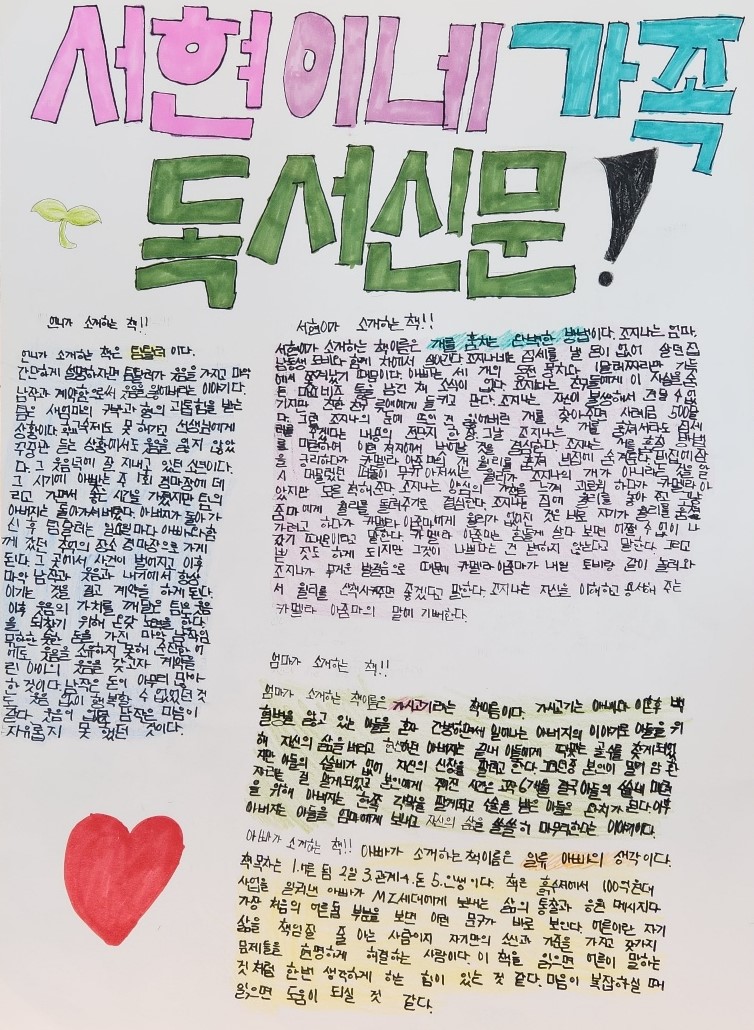 서현이네 가족
독서신문!
언니가 소개하는 책!!
언니가 소개하는 책은 팀탈러 이다.
간단하게 설명하자면 팀탈러가 웃음을 가지고 마악
남작과 계약함으로써 웃음을 잃어버리는 이야기다.
팀은 새엄마의 구박과 형의 괴롭힘을 받는
상황이다. 학교에서도 못 하고 선생님에게
꾸중만 듣는 상황에서도 웃음을 잃지 않았
다. 그 웃음덕에 잘 지내고 있던 소년이다.
그 시기에 아빠는 주 1회 경마장에 데
리고 가면서 좋은 시간을 가졌지만 팀의
아버지는 돌아가셔버렸다. 아버지가 돌아가
신 후 팀탈러는 일요일마다 아빠와 함
께 갔던 추억의 장소 경마장으로 가게
된다. 그 곳에서 사건이 벌어지고 이후
마악 남작과 웃음과 내기에서 항상
이기는 것을 걸고 계약을 하게 된다.
이후 웃음의 가치를 깨달은 팀은 웃음
을 되찾기 위해 온갖 노력을 한다.
무수한 돈을 가진 마악 남작임
에도 웃음을 소유하지 못해 순진한 어
린 아이의 웃음을 갖고자 계약을
한 것이다. 남작은 돈이 아무리 많아
도 웃음 없이 행복할 수 없었던 것
같다. 웃음이 없는 남작은 마음이
자유롭지 못 했던 것이다.
서현이가 소개하는 책!!
서현이가 소개하는 책이름은 개를 훔치는 완벽한 방법이다. 조지나는 엄마,
남동생 토비와 함께 차에서 살아간다. 조지나네는 집세를 낼 돈이 없어 살던 집
에서 쫓겨났기 때문이다. 아빠는 세 개의 동전 뭉치와 1달러짜리만 가득
든 마요네즈 통을 남긴 채 소식이 없다. 조지나는 친구들에게 이 사실을 숨
기지만 친한 친구 루앤에게 들키고 만다. 조지나는 자신이 불쌍해서 견딜 수 없
다. 그런 조지나의 눈에 띄었던 건 잃어버린 개를 찾아주면 사례금 500달
러를 주겠다는 내용의 전단지 한 장. 그날 조지나는 개를 훔쳐서라도 집세
를 마련하여 이런 처지에서 벗어날 것을 결심한다. 조지나는 개를 훔칠 방법
을 궁리하다가 카멜라 아줌마의 개 윌리를 훔쳐 빈집에 숨겨둔다. 빈집에 잠
시 머물렀던 떠돌이 무키 아저씨는 윌리가 조지나의 개가 아니라는 것을 알
았지만 모른 척해준다. 조지나는 양심의 가책을 느껴 괴로워 하다가 카멜라 아
줌마에게 윌리를 돌려주기로 결심한다. 조지나는 집에 윌리를 찾아 준 그날
가려고 하다가 카멜라 아줌마에게 윌리가 없어진 것은 바로 자기가 윌리를 훔쳤
기 때문이라고 말한다. 카멜라 아줌마는 힘들게 살다 보면 어쩔 수 없이 나
쁜 짓도 하게 되지만 그것이 나쁘다는 건 변하지 않는다고 말한다. 그리고
조지나가 무거운 발걸음으로 떠날때 카멜라 아줌마가 내일 토비랑 같이 놀러와
서 윌리를 산책시켜주면 좋겠다고 말한다. 조지나는 자신을 이해하고 용서해 주는
카멜라 아줌마의 말에 기뻐한다.
엄마가 소개하는 책!!
엄마가 소개하는 책이름은 가시고기라는 책이름이다. 가시고기는 아내와 이혼후 백
혈병을 앓고 있는 아들을 혼자 간병하면서 일어나는 아버지의 이야기로 아들을 위
해 자신의 삶을 버리고 헌신하던 아버지는 끝내 아들에게 맞는 골수를 찾게되었
지만 아들의 수술비가 없어 자신의 신장을 팔려고 한다. 그러던중 본인이 말기 암 환
자라는 걸 알게되었고 본인에게 주어진 시간은 고작 6개월 결국 아들의 수술비 마련
을 위해 아버지는 한쪽 각막을 팔게되고 수술을 받은 아들은 완치가 된다. 이후
아버지는 아들을 엄마에게 보내고 자신의 삶을 쓸쓸히 마무리한다는 이야기이다.
아빠가 소개하는 책!! 아빠가 소개하는 책이름은 일류 아빠의 생각이다.
책 목차는 1.어른 됨 2.일 3.관계 4.돈 5.인생이다. 책은 흙수저에서 100억원대
사업을 일궈낸 아빠가 MZ세대에게 보내는 삶의 통찰과 응원 메시지다
가장 처음의 어른됨 부분을 보면 이런 문구가 바로 보인다. 어른이란 자기
삶을 책임질 줄 아는 사람이자 자기만의 소신과 기준을 가지고 갖가지
문제들을 현명하게 해결하는 사람이다. 이 책을 읽으면 어른이 말하는
것처럼 한번 생각하게 하는 힘이 있는 것 같다. 마음이 복잡하실 때
읽으면 도움이 되실 것 같다.